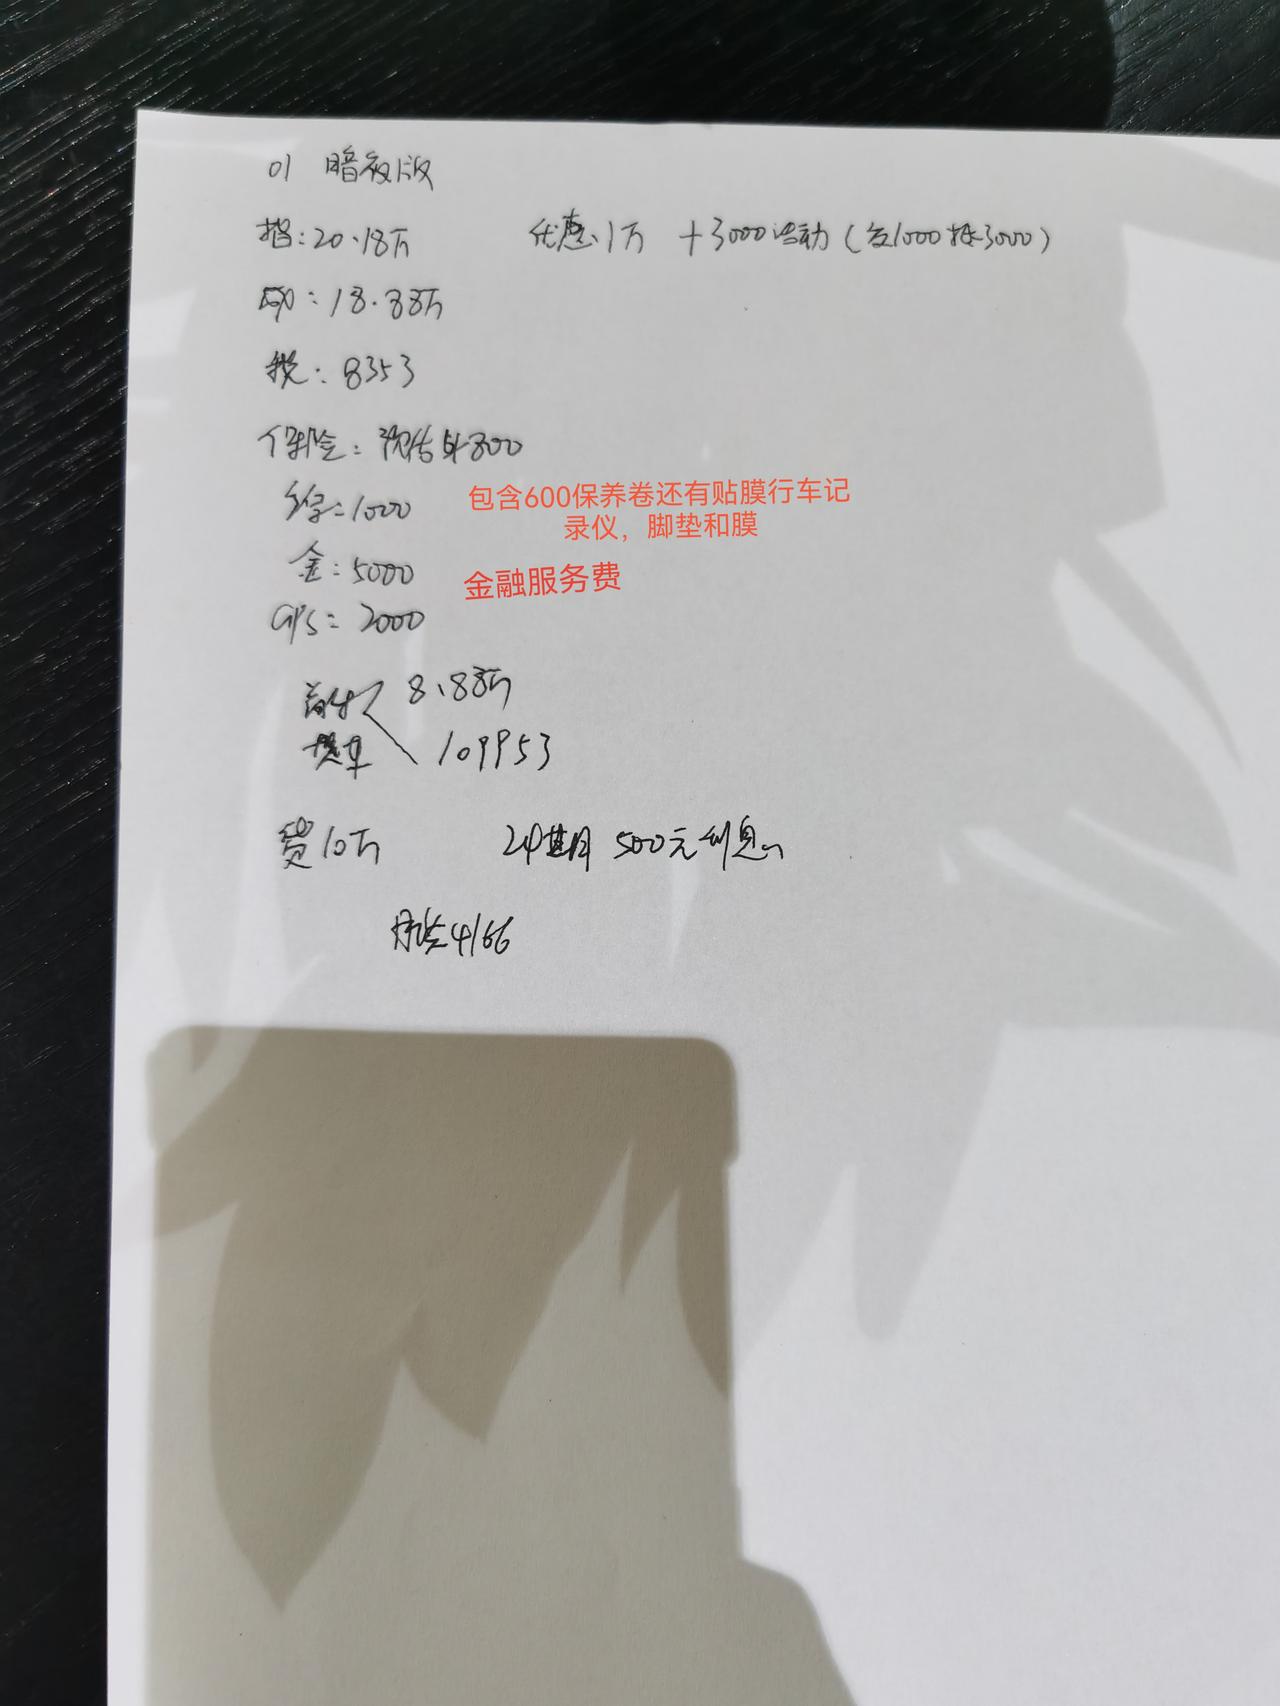 01 暗夜版
指:20.18万 优惠1万 +3000活动(交1000抵3000)
即:18.88万
税:8353
保险:预估4800
综:1000 包含600保养卷还有贴膜行车记
录仪,脚垫和膜
金:5000 金融服务费
GPS:2000
首付 8.88万
提车 109953
贷10万 24期 500元利息
月供4166